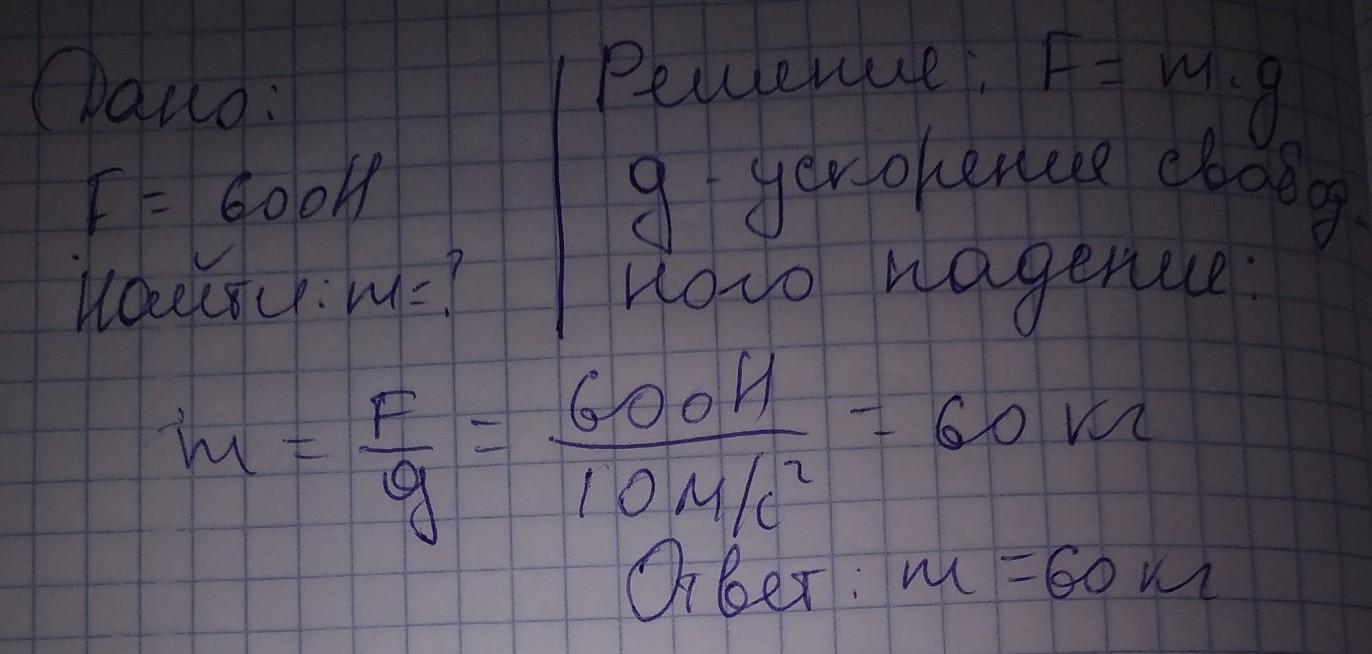 Дано:
F = 600Н
Найти: m = ?
Решение: F = m · g
g - ускорение свобод-
ного падение:
m = F/g = 600Н/10м/с² = 60 кг
Ответ: m = 60 кг